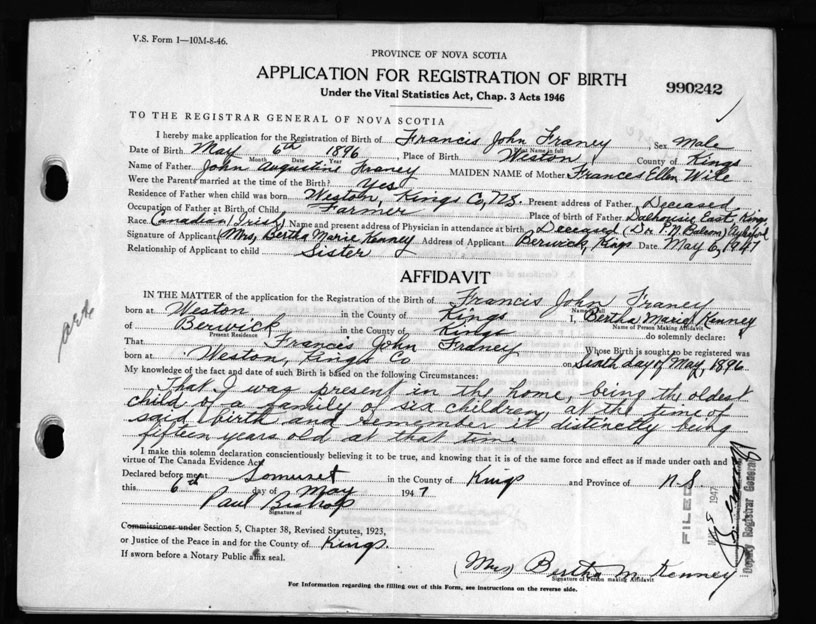 V.S. Form 1—10M-8-46.
PROVINCE OF NOVA SCOTIA
APPLICATION FOR REGISTRATION OF BIRTH
990242
Under the Vital Statistics Act, Chap. 3 Acts 1946
TO THE REGISTRAR GENERAL OF NOVA SCOTIA
I hereby make application for the Registration of Birth of Francis John Franey, Sex Male
Name in full
Date of Birth May 6th 1896, Place of Birth Weston, County of Kings
Month Date Year
Name of Father John Augustine Franey MAIDEN NAME of Mother Frances Ellen Wile
Were the Parents married at the time of the Birth? Yes
Residence of Father when child was born Weston, Kings Co, N.S. Present address of Father Deceased
Occupation of Father at Birth of Child Farmer Place of birth of Father Dalhousie East, Kings
Race Canadian (Irish) Name and present address of Physician in attendance at birth Deceased (Dr P.N. Balcom) Aylesford
Signature of Applicant (Mrs, Bertha Marie Kenney Address of Applicant Berwick, Kings Date May 6, 1947
Relationship of Applicant to child Sister
AFFIDAVIT
IN THE MATTER of the application for the Registration of the Birth of Francis John Franey
Name in full
born at Weston in the County of Kings I, Bertha Marie Kenney
Name of Person Making Affidavit
of Berwick in the County of Kings do solemnly declare:
Present Residence
That Francis John Franey Whose Birth is sought to be registered was
born at Weston, Kings Co on Sixth day of May, 1896
My knowledge of the fact and date of such Birth is based on the following Circumstances:
That I was present in the home, being the oldest
child of a family of six children, at the time of
said birth and remember it distinctly being
fifteen years old at that time
I make this solemn declaration conscientiously believing it to be true, and knowing that it is of the same force and effect as if made under oath and by
virtue of The Canada Evidence Act
Declared before me at Somerset in the County of Kings and Province of N.S
this 6th day of May 1947
Paul Bishop
Signature of
Commissioner under Section 5, Chapter 38, Revised Statutes, 1923,
or Justice of the Peace in and for the County of Kings.
If sworn before a Notary Public affix seal.
(Mrs) Bertha M. Kenney
Signature of Person making Affidavit
For Information regarding the filling out of this Form, see instructions on the reverse side.
FILED
1947
Deputy Registrar General